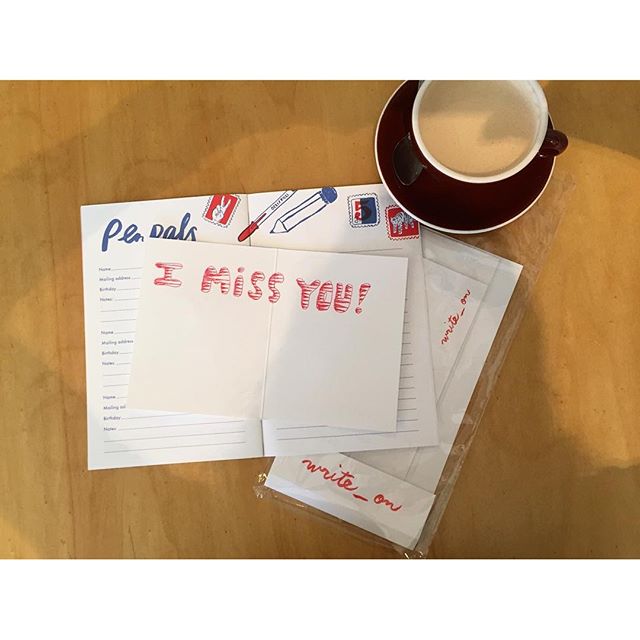 Pen pals
5
I MISS YOU!
Name
Mailing address
Birthday
Notes:
Name
Mailing
Birthday
Notes
Name
Mailing ad
Birthday
Notes
write_on
write_on